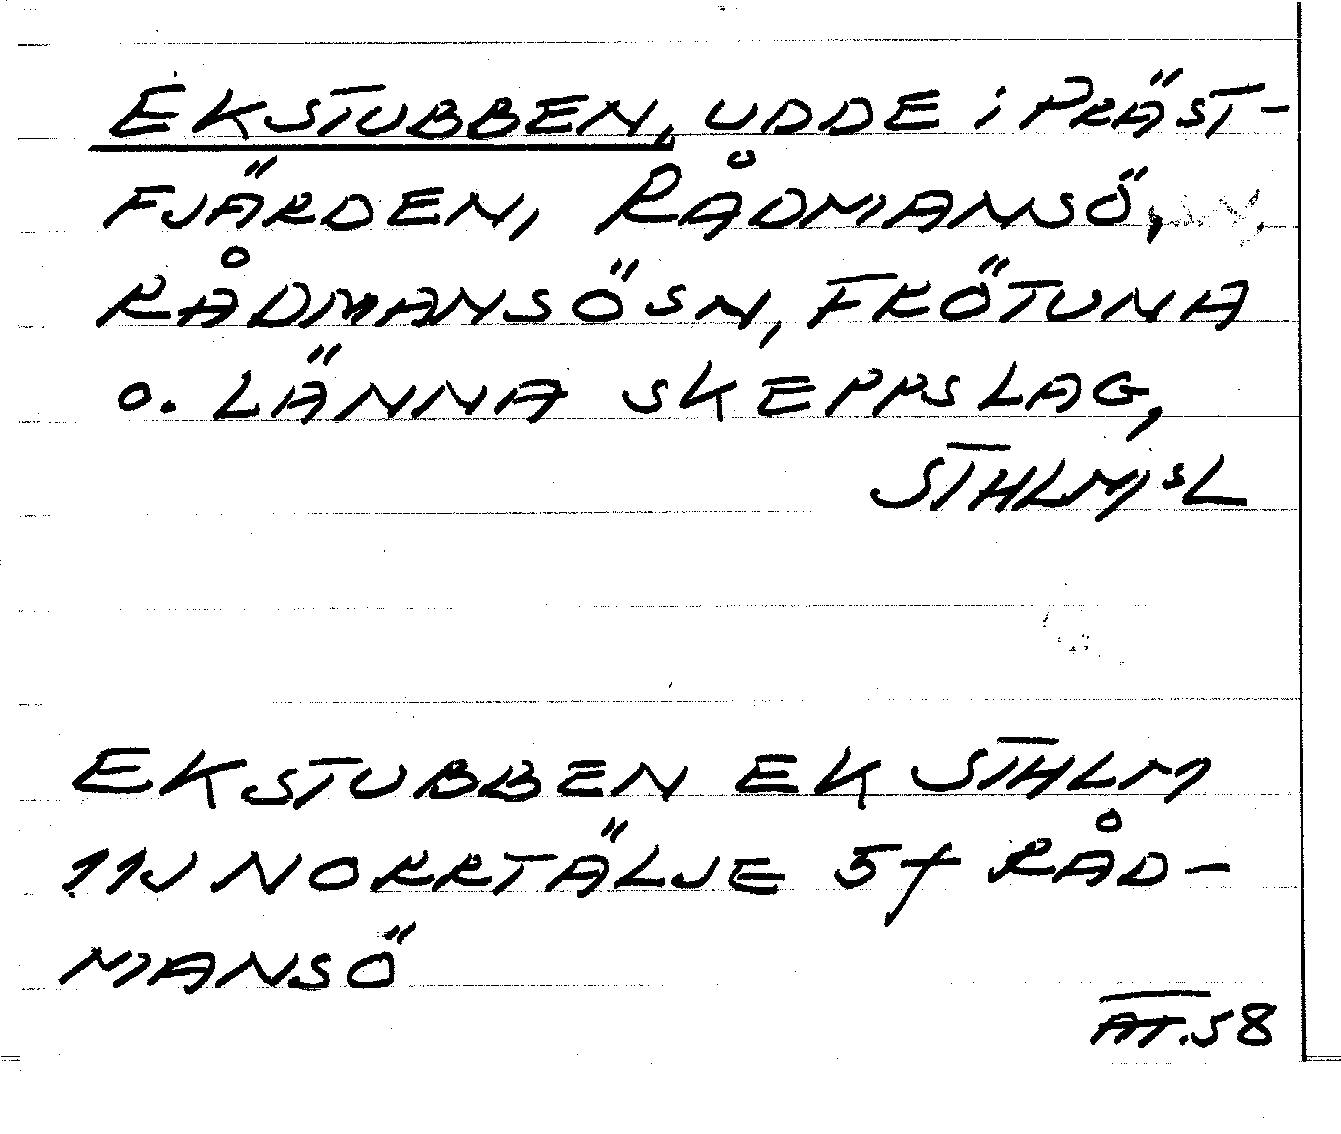 EKSTUBBEN, UDDE i PRÄST-
FJÄRDEN, RÅDMANSÖ,
RÅDMANSÖ SN, FRÖTUNA
o. LÄNNA SKEPPSLAG,
STHLMSL
EKSTUBBEN EK STHLM
11J NORRTÄLJE 5f RÅD-
MANSÖ
AT.58